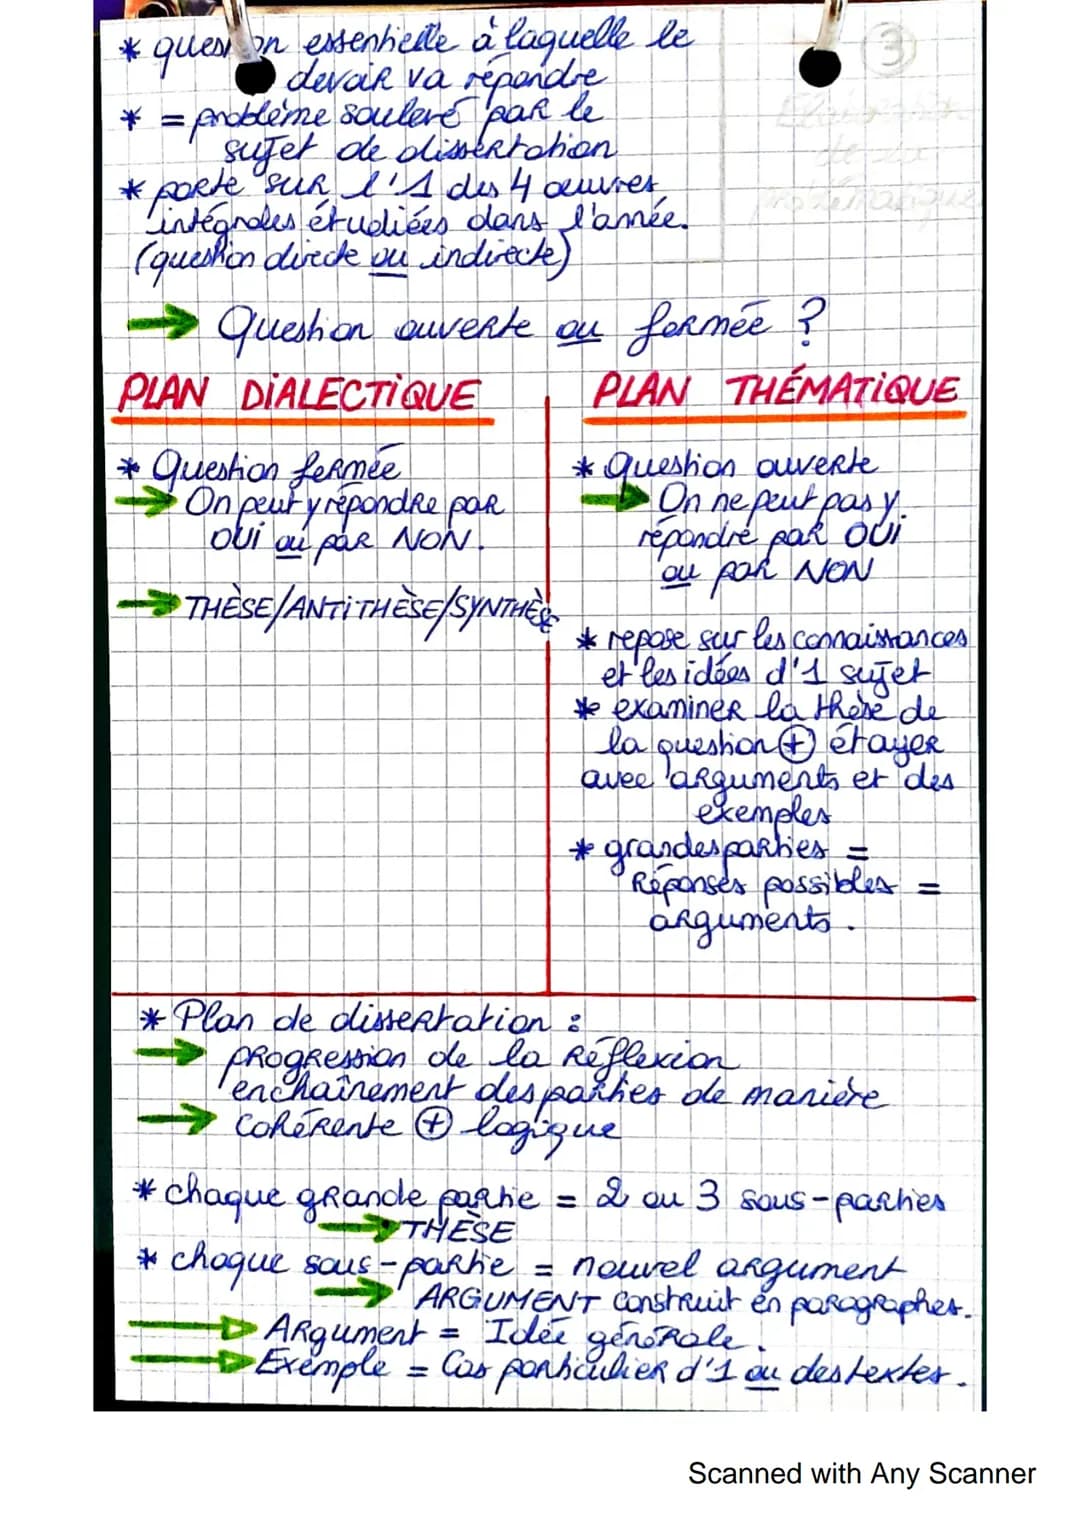 * question essentielle à laquelle le
devoir va répondre
* = problème soulevé par le
sujet de dissertation
* porte sur l'1 des 4 œuvres
intégrales étudiées dans l'année.
(question directe ou indirecte)
3
Élaboration
de la
problématique
→ Question ouverte ou fermée ?
PLAN DIALECTIQUE
* Question fermée
→ On peut y répondre par
OUI ou par NON.
→ THÈSE/ANTITHÈSE/SYNTHÈSE
PLAN THÉMATIQUE
* Question ouverte
→ On ne peut pas y
répondre par OUI
ou par NON
* repose sur les connaissances
et les idées d'1 sujet
* examiner la thèse de
la question ⊕ étayer
avec arguments et des
exemples
* grandes parties =
Réponses possibles =
arguments.
* Plan de dissertation :
→ progression de la Réflexion
enchaînement des parties de manière
→ Cohérente ⊕ logique
* chaque grande partie = 2 ou 3 sous-parties
→ THÈSE
* chaque sous-partie = nouvel argument
→ ARGUMENT construit en paragraphes.
→ Argument = Idée générale.
→ Exemple = Cas particulier d'1 ou des textes.
Scanned with Any Scanner